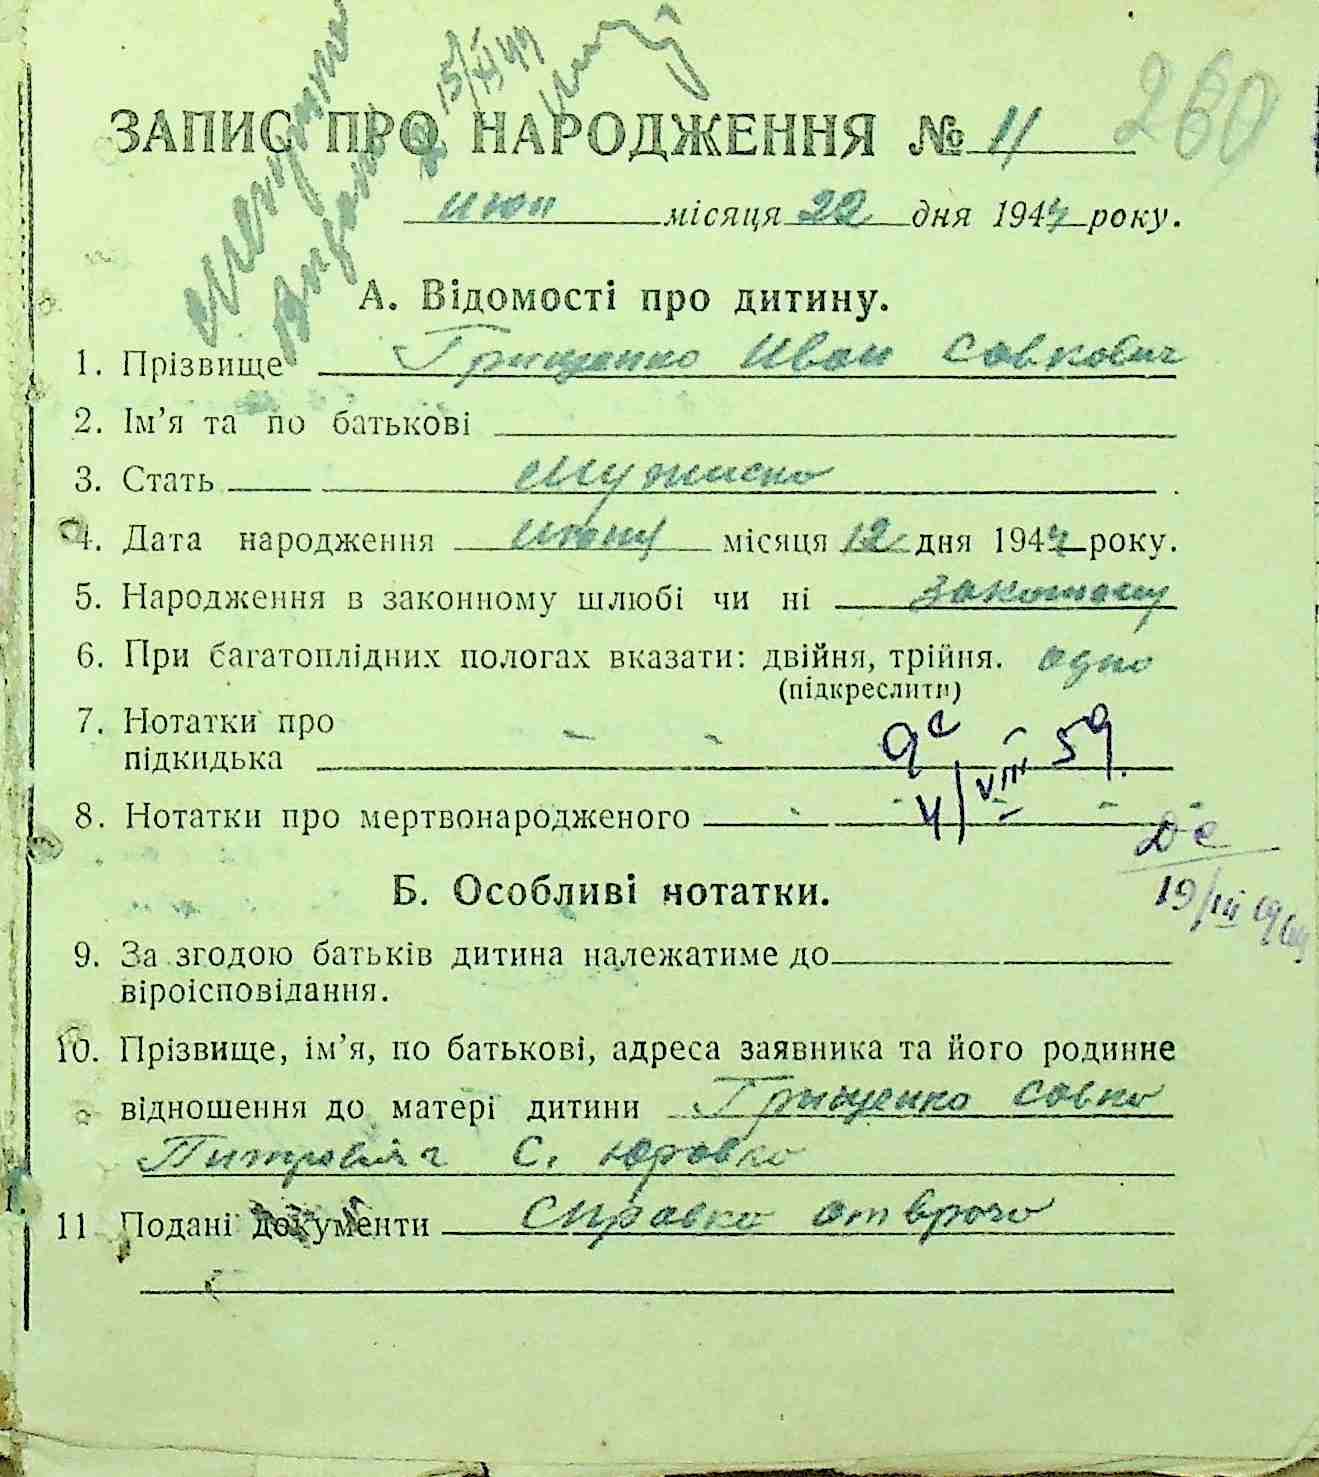 260
15/XI 44
ЗАПИС ПРО НАРОДЖЕННЯ № 11
июн місяця 22 дня 1944 року.
А. Відомості про дитину.
1. Прізвище Грищенко Иван Савкович
2. Ім’я та по батькові
3. Стать
4. Дата народження місяця 12 дня 1944 року.
5. Народження в законному шлюбі чи ні
6. При багатоплідних пологах вказати: двійня, трійня. одно
(підкреслити)
7. Нотатки про
підкидька
4/VIII 59
8. Нотатки про мертвонародженого
Б. Особливі нотатки.
19/III
9. За згодою батьків дитина належатиме до
віроісповідання.
10. Прізвище, ім’я, по батькові, адреса заявника та його родинне
відношення до матері дитини Грищенко Савко
С. Юровка
11 Подані документи Справка от врача